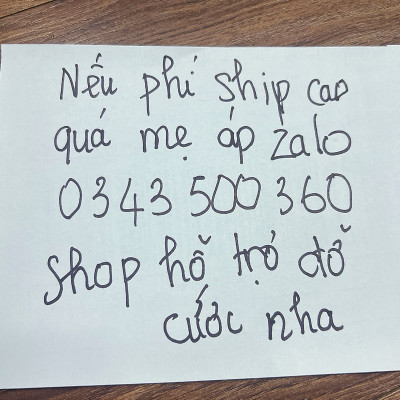 Nếu phí ship cao
quá mẹ áp zalo
0343 500 360
shop hỗ trợ đỡ
cước nha